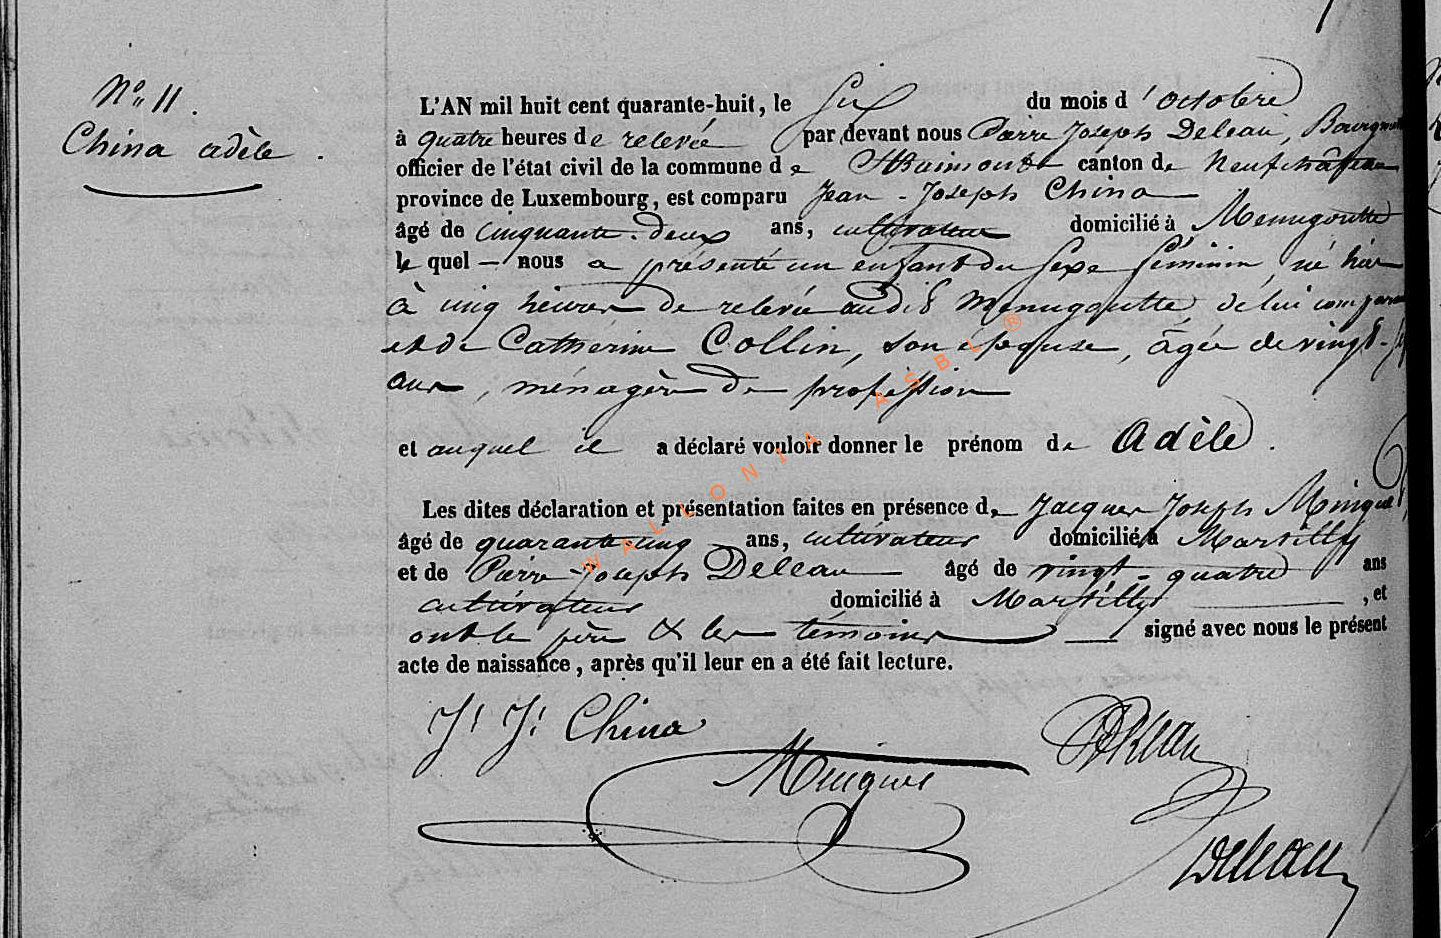 N° 11.
China adèle.
L'AN mil huit cent quarante-huit, le Six du mois d'octobre
à quatre heures de relevée par devant nous Pierre Joseph Deleau, Bourgm
officier de l'état civil de la commune de Straimont canton de Neufchâteau
province de Luxembourg, est comparu Jean-Joseph China
âgé de cinquante-deux ans, cultivateur domicilié à Menugoutte
le quel — nous a présenté un enfant du sexe féminin, né hier
à cinq heures de relevée audit Menugoutte, de lui compara
et de Catherine Collin, son épouse, âgée de vingt-
ans, ménagère de profession
et auquel il a déclaré vouloir donner le prénom de Adèle.
Les dites déclaration et présentation faites en présence de Jacques Joseph Minguet
âgé de quarante cinq ans, cultivateur domicilié à Martilly
et de Pierre-Joseph Deleau âgé de vingt-quatre ans
cultivateur domicilié à Martilly, et
ont le père & les témoins signé avec nous le présent
acte de naissance, après qu'il leur en a été fait lecture.
J. J. China
Minguet
Deleau
Deleau
WALLONIA ASBL ®